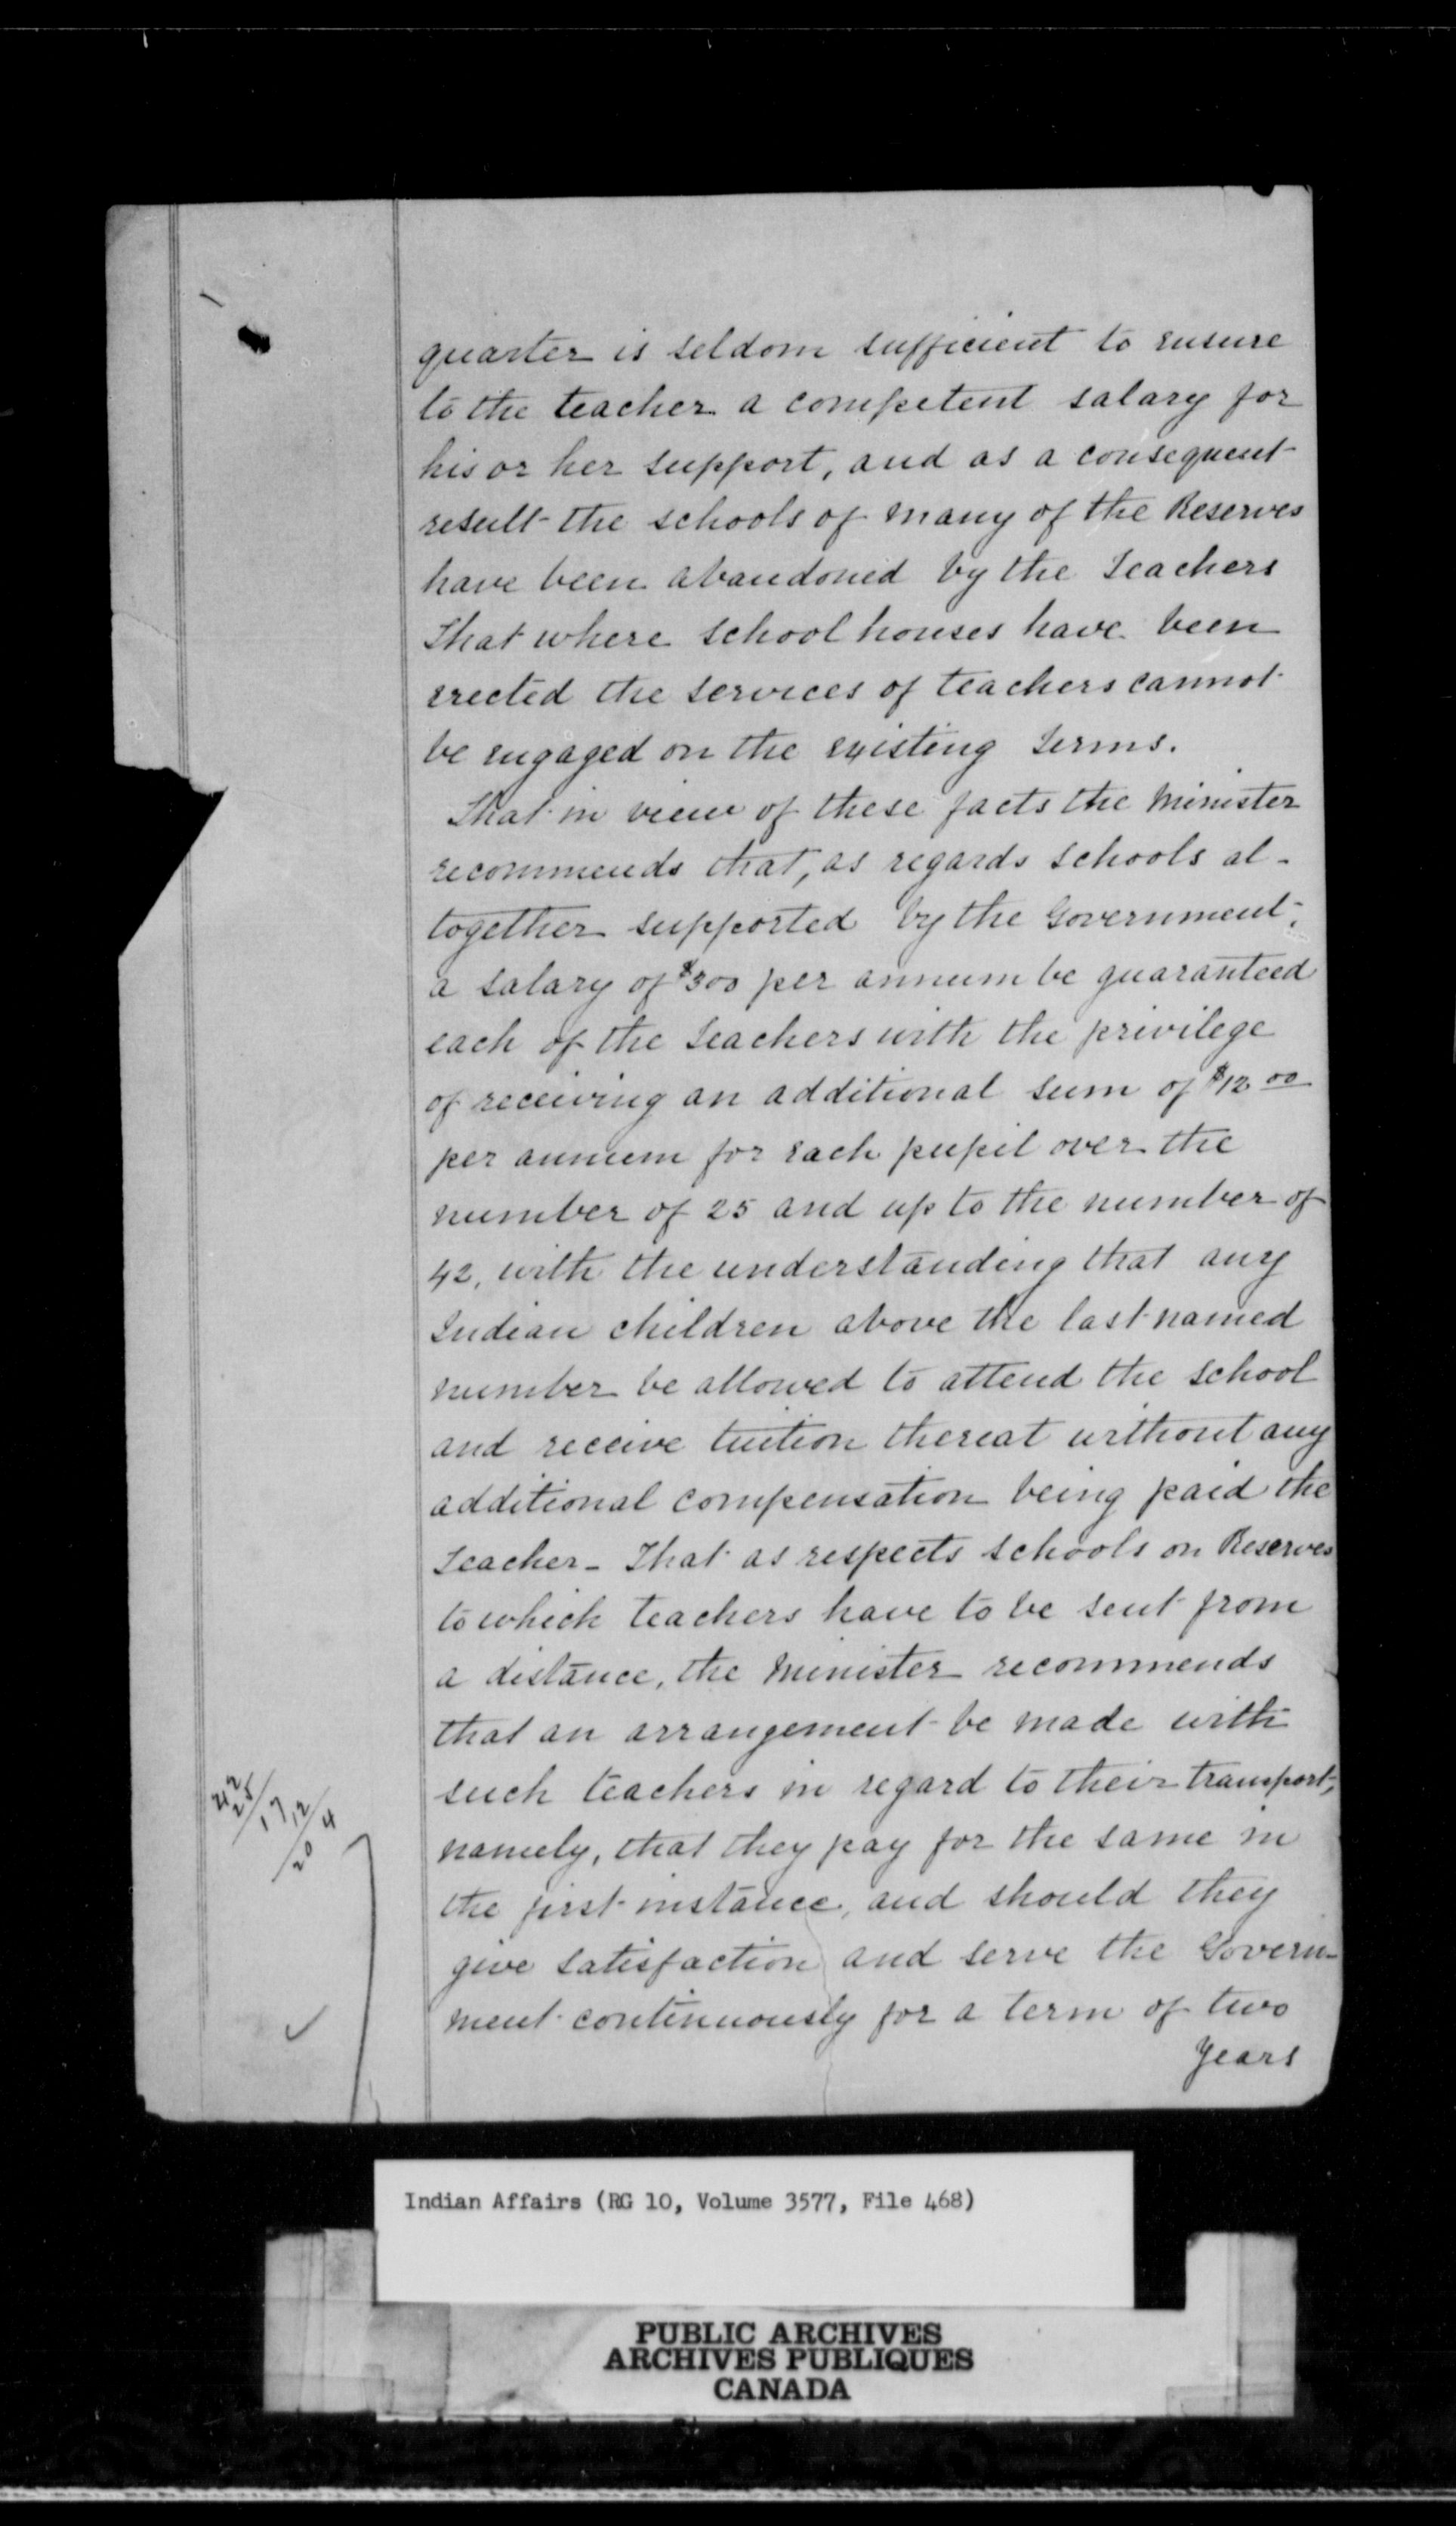 quarter is seldom sufficient to ensure
to the teacher a competent salary for
his or her support, and as a consequent
result the schools of many of the Reserves
have been abandoned by the Teachers
That where school houses have been
erected the services of teachers cannot
be engaged on the existing terms.
That in view of these facts the Minister
recommends that, as regards schools al-
together supported by the Government,
a salary of $300 per annum be guaranteed
each of the Teachers with the privilege
of receiving an additional sum of $12.00
per annum for each pupil over the
number of 25 and up to the number of
42, with the understanding that any
Indian children above the last named
number be allowed to attend the school
and receive tuition thereat without any
additional compensation being paid the
Teacher - That as respects schools on Reserves
to which teachers have to be sent from
a distance, the Minister recommends
that an arrangement be made with
such teachers in regard to their transport,
namely, that they pay for the same in
the first instance, and should they
give satisfaction and serve the Govern-
ment continuously for a term of two
Years
42
25
17
12
204
Indian Affairs (RG 10, Volume 3577, File 468)
PUBLIC ARCHIVES
ARCHIVES PUBLIQUES
CANADA